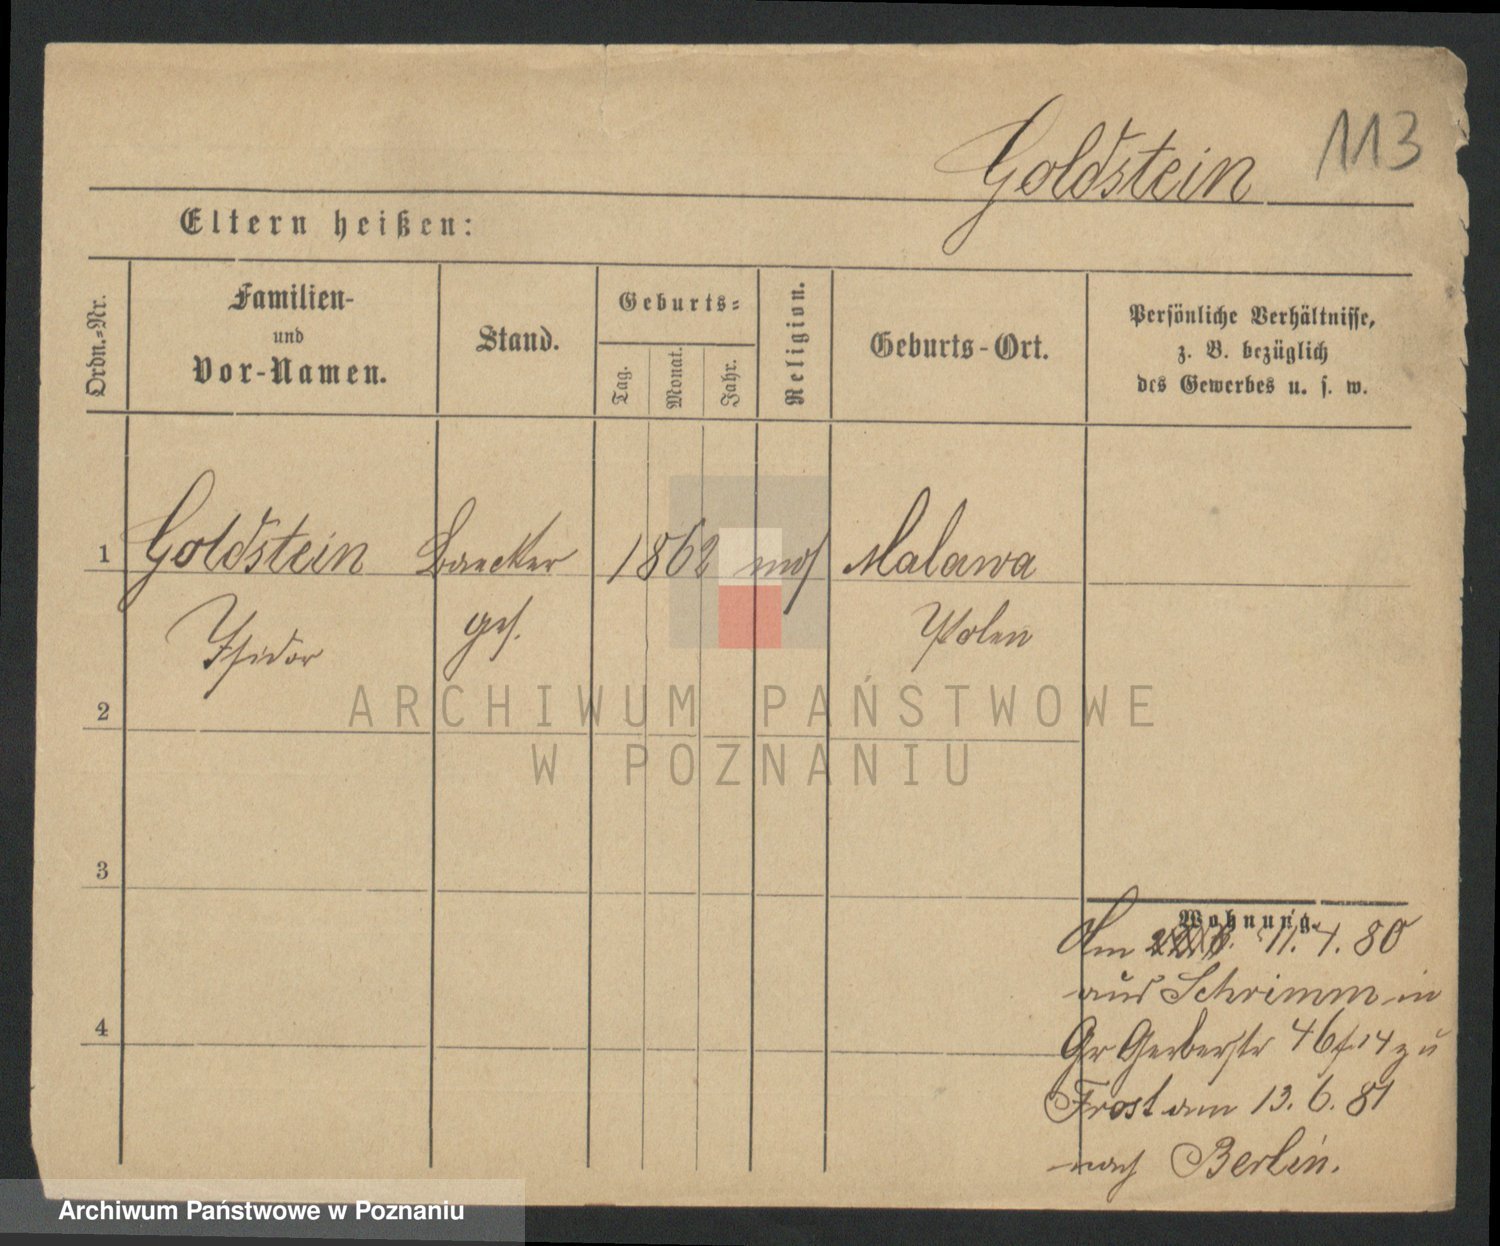 Goldstein 113
Eltern heißen:
Ordn.-Nr.
Familien-
und
Vor-Namen.
Stand.
Geburts-
Tag.
Monat.
Jahr.
Religion.
Geburts-Ort.
Persönliche Verhältnisse,
z. B. bezüglich
des Gewerbes u. s. w.
1 Goldstein Baecker 1862 mos Malawa
Isidor ges. Polen
2
ARCHIWUM PAŃSTWOWE
W POZNANIU
3
4
Wohnung.
Am 11. 4. 80
aus Schrimm in
Gr Gerberstr 46 14 zu
Frost am 13. 6. 81
nach Berlin.
Archiwum Państwowe w Poznaniu